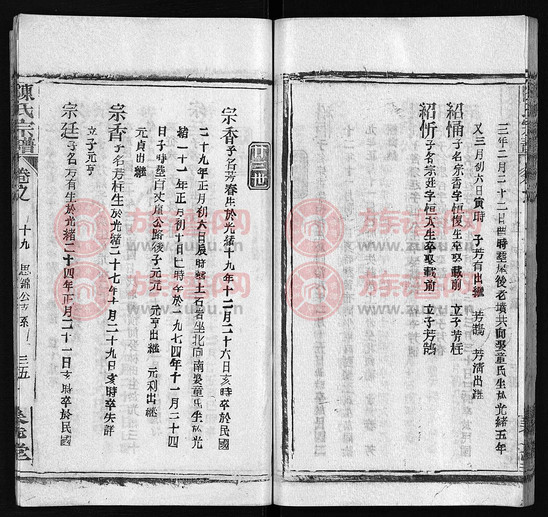 三年二月二十二日 時塟屋後老墳共向娶童氏生於光緒五年
又三月初六日寅時 子芳有出繼 芳鵠 芳濟出繼
紹恓子名宗香字恒俊生卒娶載前 立子芳柱
紹忻子名宗廷字恒太生卒娶載前 立子芳鵠
廿三世
宗香子名芳春生於光緒十九年十二月二十六日亥時卒於民國
二十九年正月初六日辰時塟土石岩坐北向南娶童氏生於光
緒二十一年正月初十日巳時卒於一九七四年十一月二十四
日子時塟百丈 公路後子元元 元亨出繼 元利出繼
元貞出繼
宗香子名芳柱生於光緒二十七年七月二十九日亥時卒失詳
立子元亨
宗廷子名芳有生於光緒二十四年正月二十一日亥時卒於民國
陳氏宗譜
卷之
十九
思 公支系
三五
族谱网
www.zupu.cn
族谱网
www.zupu.cn